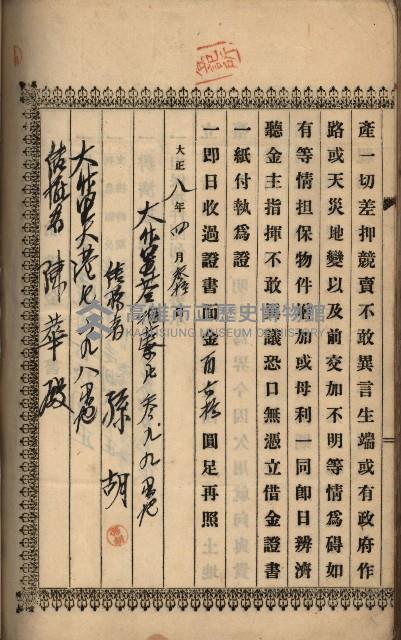 產一切差押競賣不敢異言生端或有政府作
路或天災地變以及前交加不明等情爲碍如
有等情担保物件增加或母利一同卽日辨濟
聽金主指揮不敢異議恐口無憑立借金證書
一紙付執爲證
一卽日收過證書面金百 圓足再照
大正八年四月 日
大竹里 九九番地
債務者 孫胡
大竹里大港七九八番地
債權者 陳華殿
高雄市立歷史博物館
KAOHSIUNG MUSEUM OF HISTORY